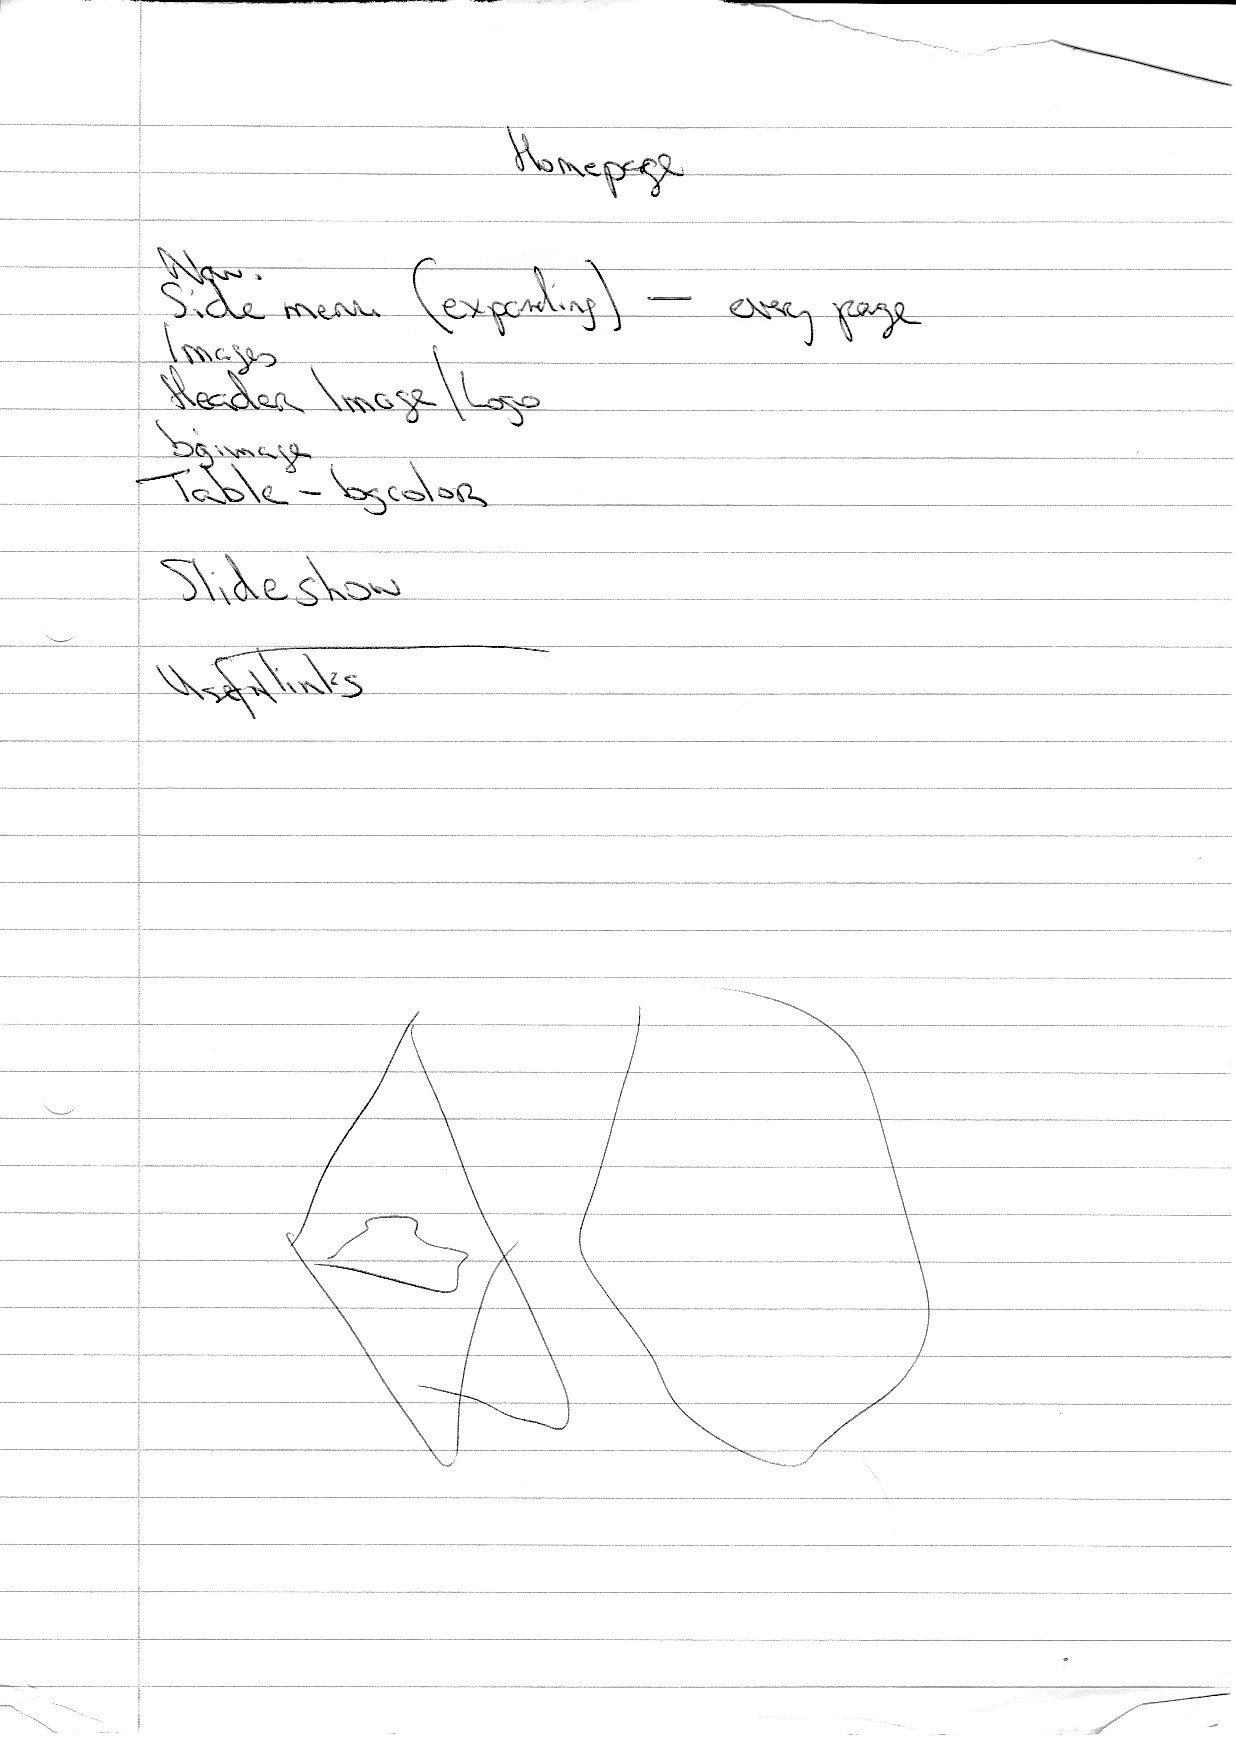 Homepage
Nav.
Side menu (expanding) — every page
Images
Header Image/Logo
bgimage
Table - bgcolor
Slideshow
Useful links